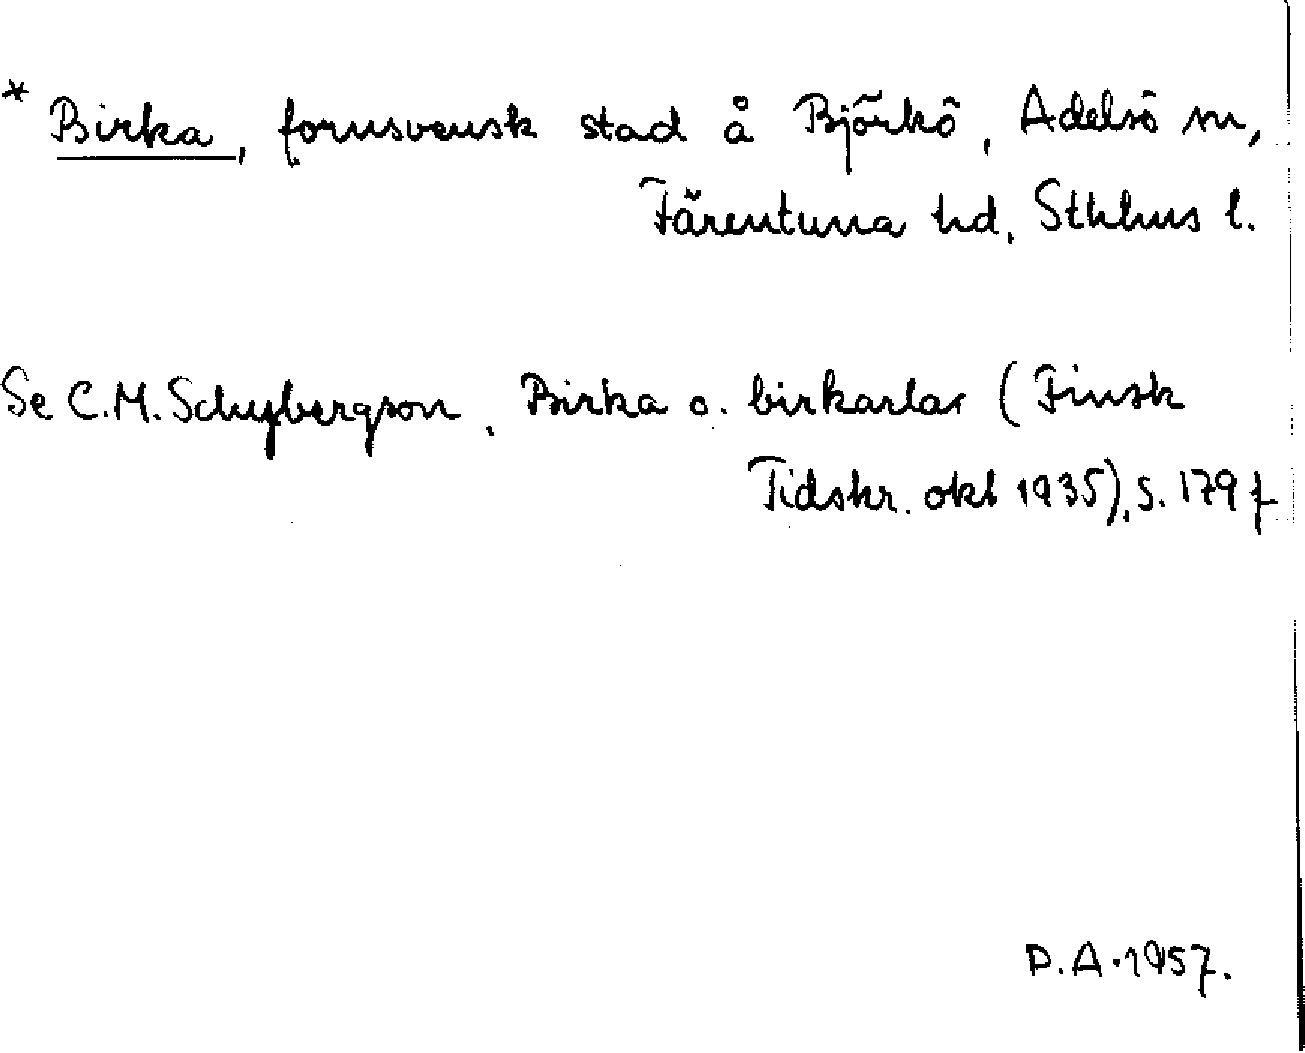 * Birka, fornsvensk stad å Björkö, Adelsö sn,
Färentuna hd, Sthlms l.
Se C.M. Schybergson, Birka o. birkarlar (Finsk
Tidskr. okt 1935), s. 179 f
P.A. 1957.